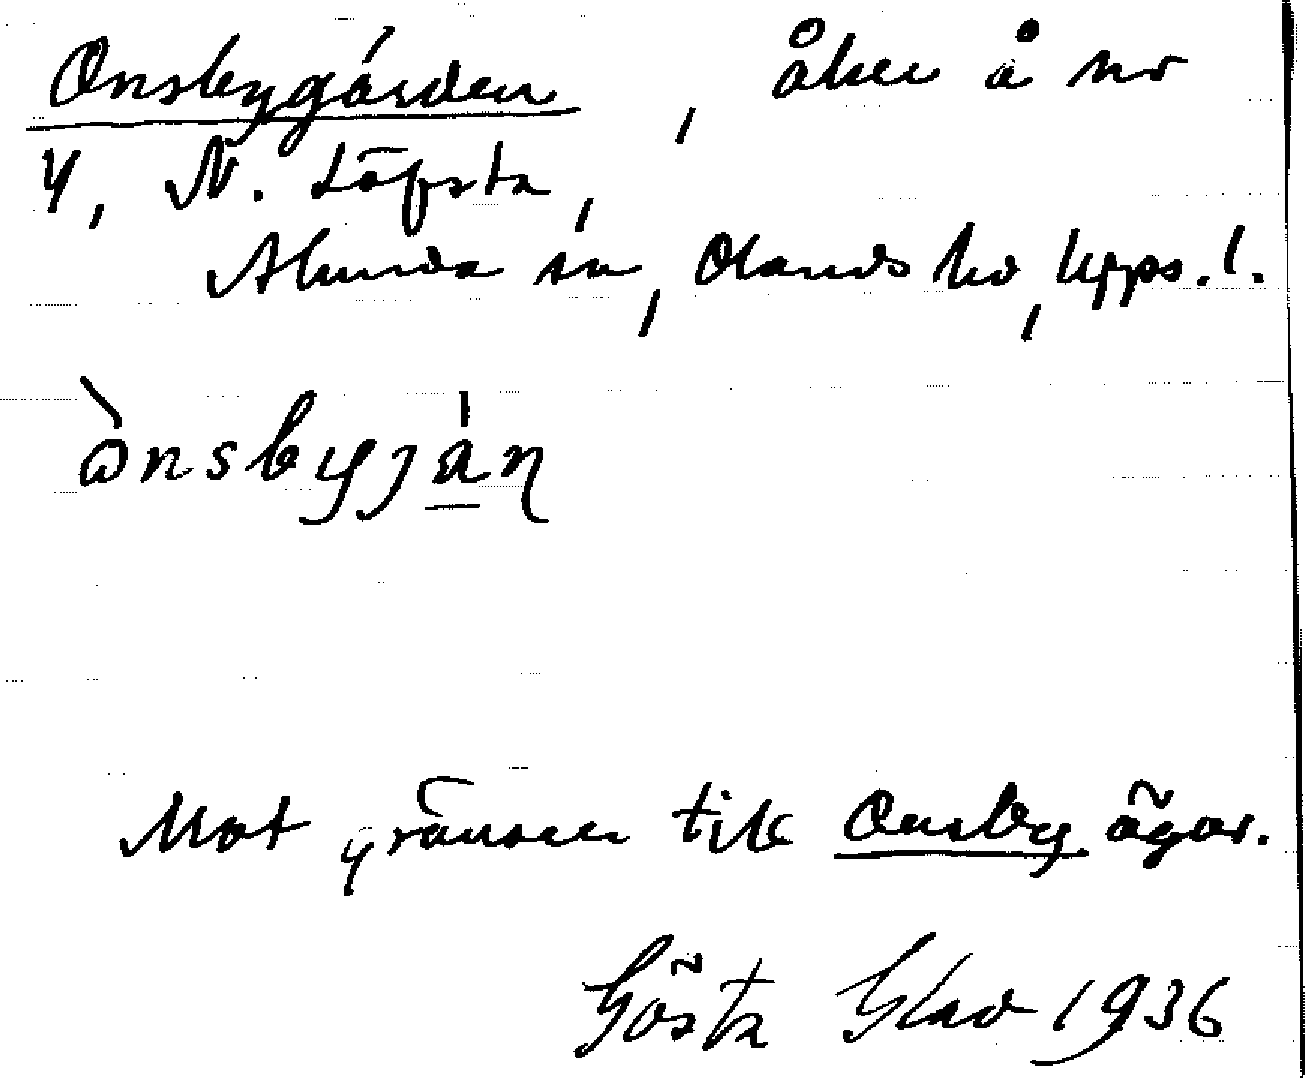 Onsbygården, åker å nr
4, N. Löfsta,
Alunda sn, Olands hd, Upps. l.
ònsbyján
Mot gränsen till Onsby ägor.
Gösta Glad 1936